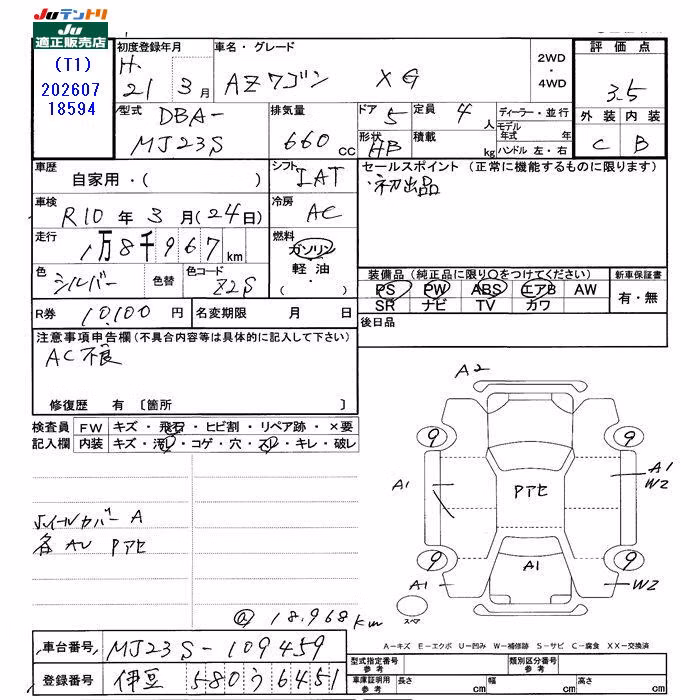 JUテントリ
JU
適正販売店
(T1)
202607
18594
初度登録年月 車名・グレード 2WD・4WD 評価点
H. 21年 3月 AZワゴン XG 3.5
外装 内装
C B
型式 DBA-MJ23S 排気量 660cc ドア 5 定員 4人 ディーラー・並行
形状 HB 積載 kg モデル年式 年
ハンドル 左・右
車歴 自家用・( ) シフト IAT セールスポイント (正常に機能するものに限ります)
・初出品
車検 R10年3月(24日) 冷房 AC
走行 1万8千967km 燃料 ガソリン
軽油
( ・ )
色 シルバー 色替 色コード Z2S
装備品(純正品に限り○をつけてください) 新車保証書
PS PW ABS エアB AW 有・無
SR ナビ TV カワ
R券 10,100円 名変期限 月 日 後日品
注意事項申告欄(不具合内容等は具体的に記入して下さい)
AC不良
修復歴 有 〔箇所 〕
検査員 FW キズ・飛石・ヒビ割・リペア跡・×要
記入欄 内装 キズ・汚・コゲ・穴・スレ・キレ・破レ
ホイルカバーA
各AU Pアセ
@18,968km
A2
9 9
A1 Pアセ A1
W2
9 9
A1 A1 W2
スペア
A-キズ E-エクボ U-凹み W-補修跡 S-サビ C-腐食 XX-交換済
車台番号 MJ23S-109459
登録番号 伊豆 580 う 6451
型式指定番号 参考 類別区分番号 参考
車庫証明用 参考 長さ cm 幅 cm 高さ cm